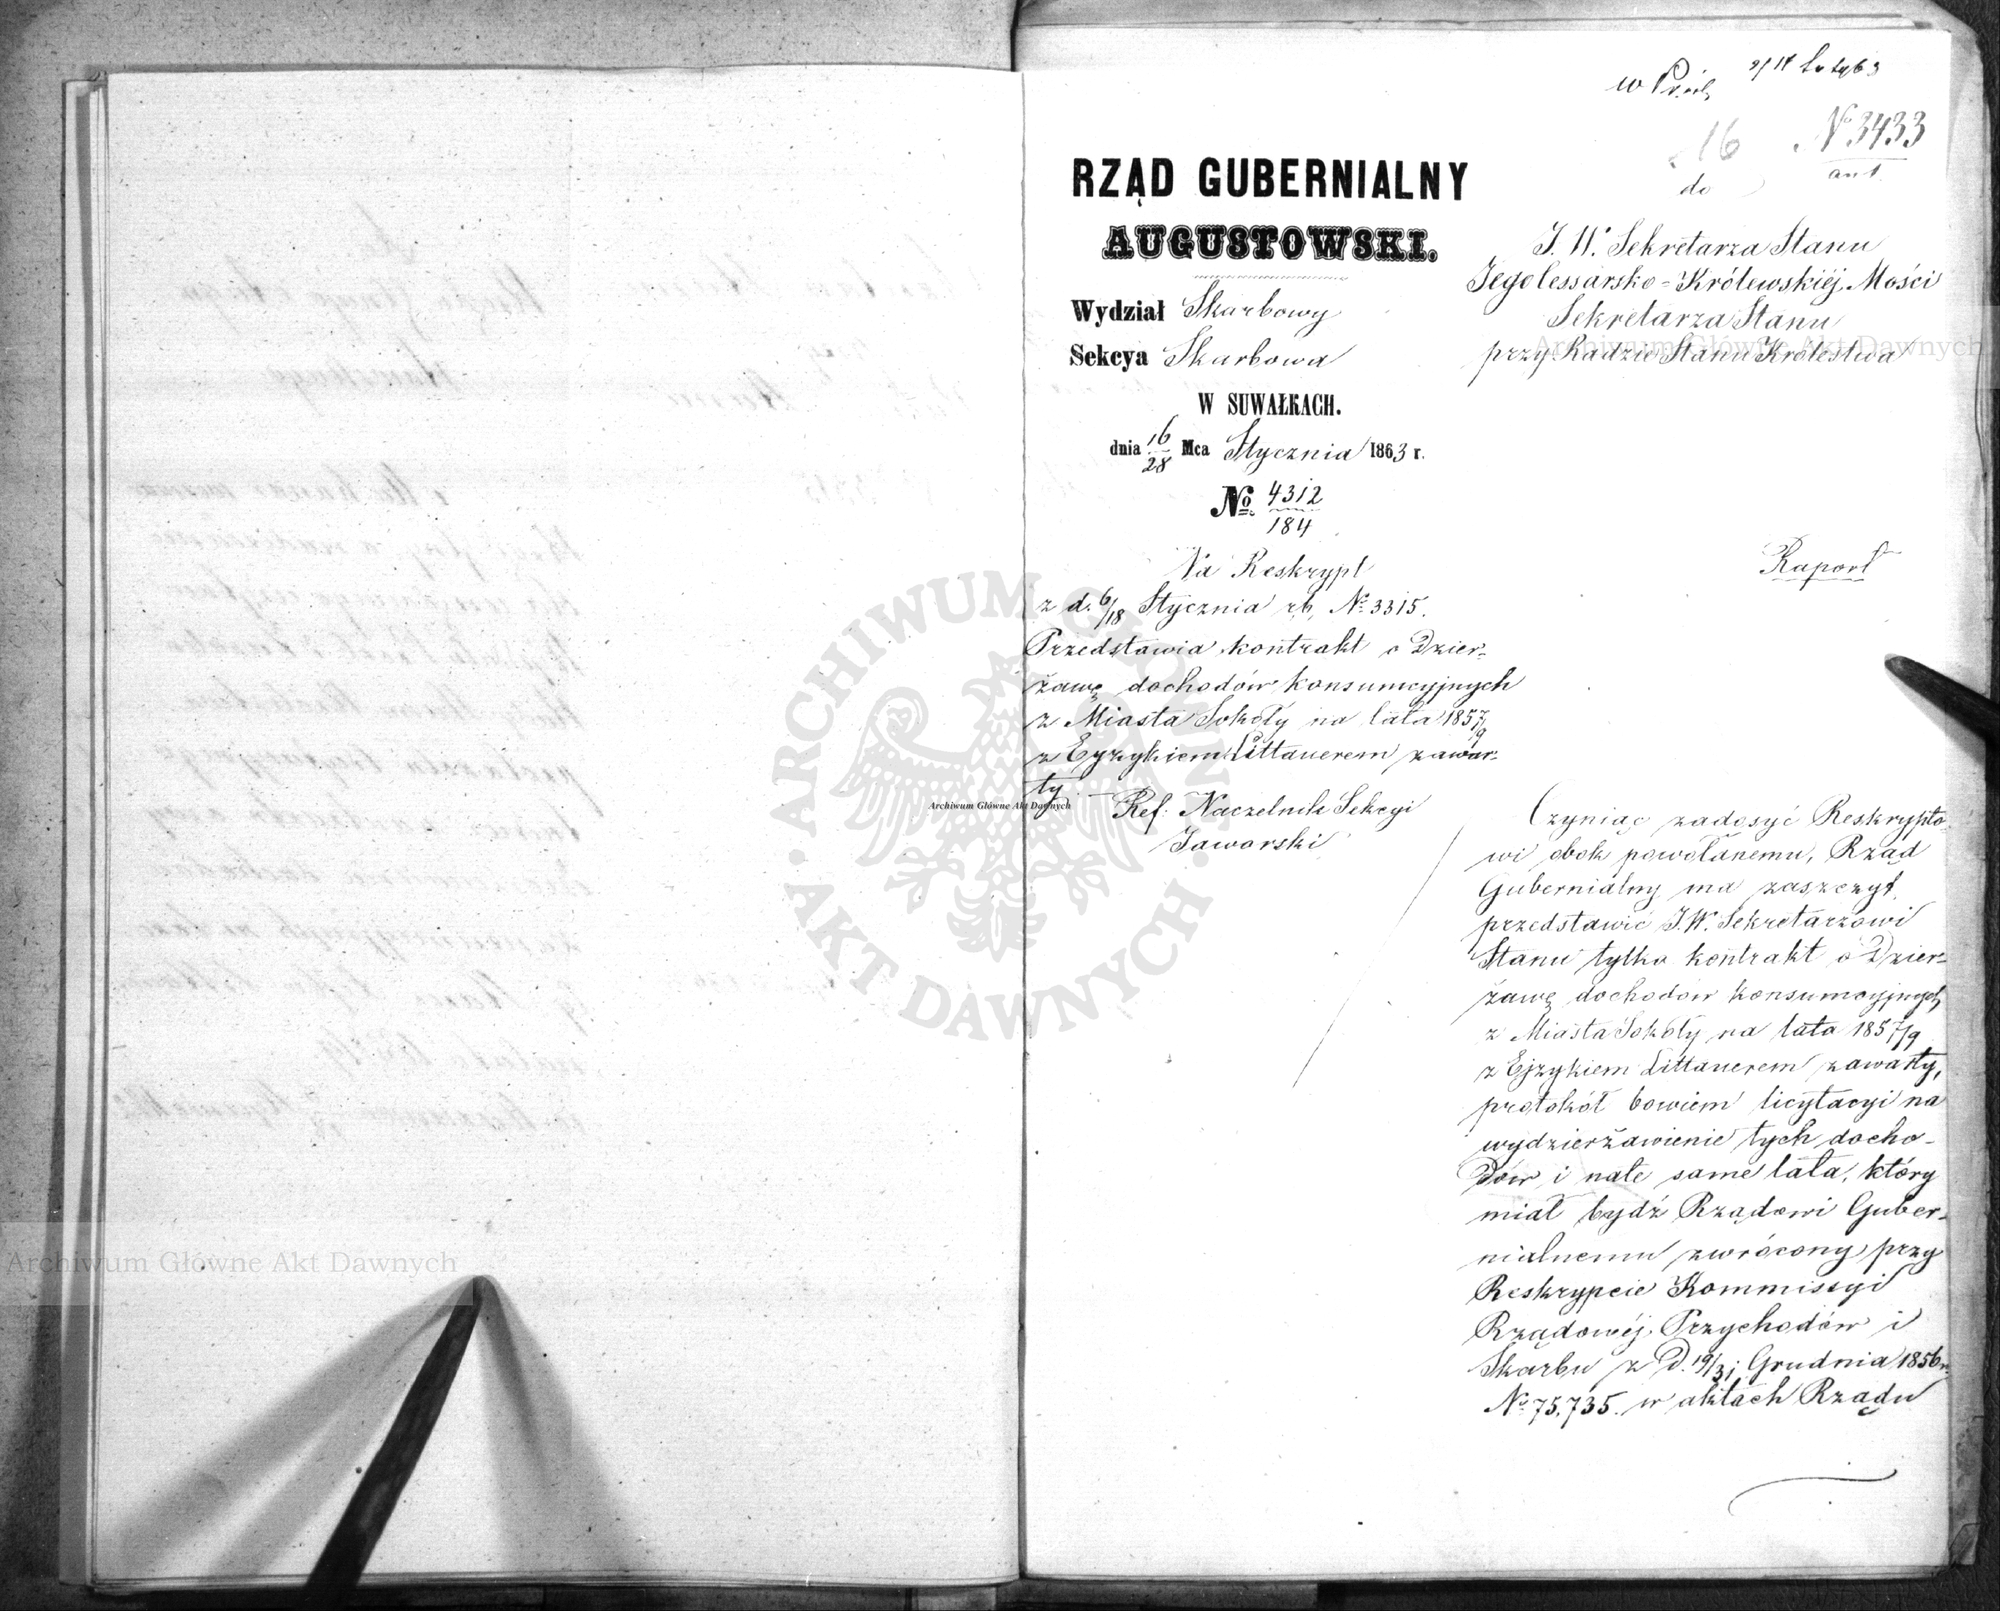 9/18 Lut 63
16
No 3433
ant.
do
RZĄD GUBERNIALNY
AUGUSTOWSKI.
J. W. Sekretarza Stanu
Jego Cessarsko-Królewskiéj Mości
Sekretarza Stanu
przy Radzie Stanu Królestwa
Wydział Skarbowy
Sekcya Skarbowa
W SUWAŁKACH.
dnia 16/28 Mca Stycznia 1863 r.
No. 4312/184
Na Reskrypt
z d. 6/18 Stycznia rb. No 3315.
Przedstawia kontrakt o Dzier-
żawę dochodów konsumcyjnych
z Miasta Sokoły na lata 1857/9
z Eyzykiem Littauerem zawar-
ty. —
Ref: Naczelnik Sekcyi
Jaworski
Raport
Czyniąc zadosyć Reskrypto-
wi obok powołanemu, Rząd
Gubernialny ma zaszczyt
przedstawić J.W. Sekretarzowi
Stanu tylko kontrakt o Dzier-
żawę dochodów konsumcyjnych
z Miasta Sokoły na lata 1857/9
z Ejzykiem Littauerem zawarty,
protokół bowiem licytacyi na
wydzierżawienie tych docho-
dów i na te same lata, który
miał bydź Rządowi Guber-
nialnemu zwrócony przy
Reskrypcie Kommissyi
Rządowéj Przychodów i
Skarbu z d. 19/31 Grudnia 1856 r.
No 75,735. w aktach Rządu
ARCHIWUM GŁÓWNE AKT DAWNYCH
Archiwum Główne Akt Dawnych
Archiwum Główne Akt Dawnych
Archiwum Główne Akt Dawnych